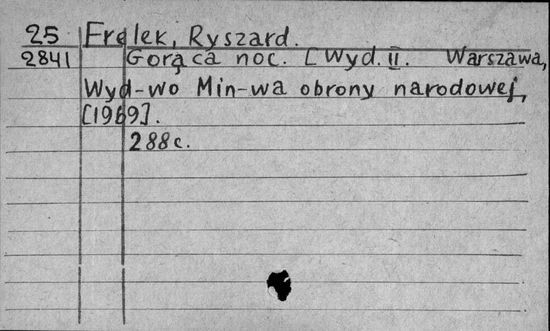 25 Frelek, Ryszard.
2841 Gorąca noc. [Wyd. II. Warszawa,
Wyd-wo Min-wa obrony narodowej,
[1969].
288c.